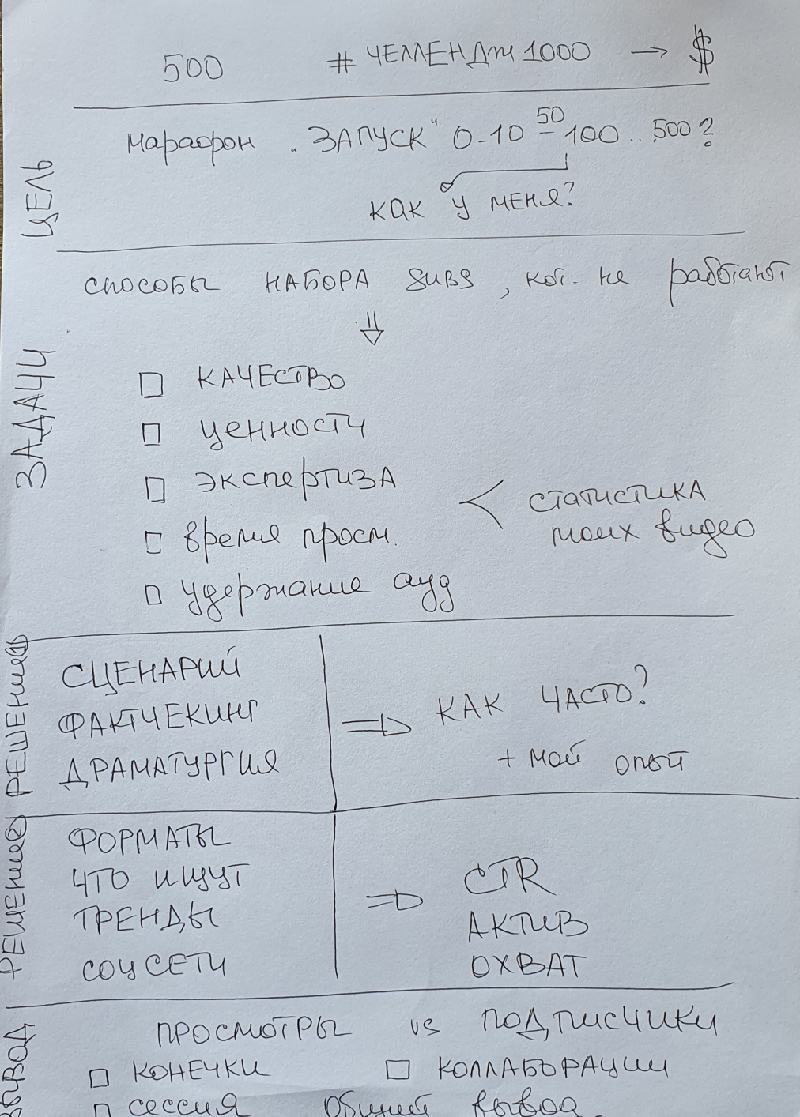 500 # ЧЕЛЛЕНДЖ 1000 → $
ЦЕЛЬ
марафон "ЗАПУСК" 0-10 - 50 100.. 500?
КАК У МЕНЯ?
ЗАДАЧИ
СПОСОБЫ НАБОРА SUBS, кот. не работают
КАЧЕСТВО
ЦЕННОСТИ
ЭКСПЕРТИЗА
время просм.
удержание ауд
СТАТИСТИКА
моих видео
РЕШЕНИЕ ①
СЦЕНАРИЙ
ФАКТЧЕКИНГ
ДРАМАТУРГИЯ
⇒ КАК ЧАСТО?
+ МОЙ ОПЫТ
РЕШЕНИЕ ②
ФОРМАТЫ
ЧТО ИЩУТ
ТРЕНДЫ
СОЦСЕТИ
⇒ CTR
АКТИВ
ОХВАТ
ВЫВОД
ПРОСМОТРЫ vs ПОДПИСЧИКИ
КОНЕЧКИ
КОЛЛАБОРАЦИИ
СЕССИЯ ОБЩИЙ ВЫВОД